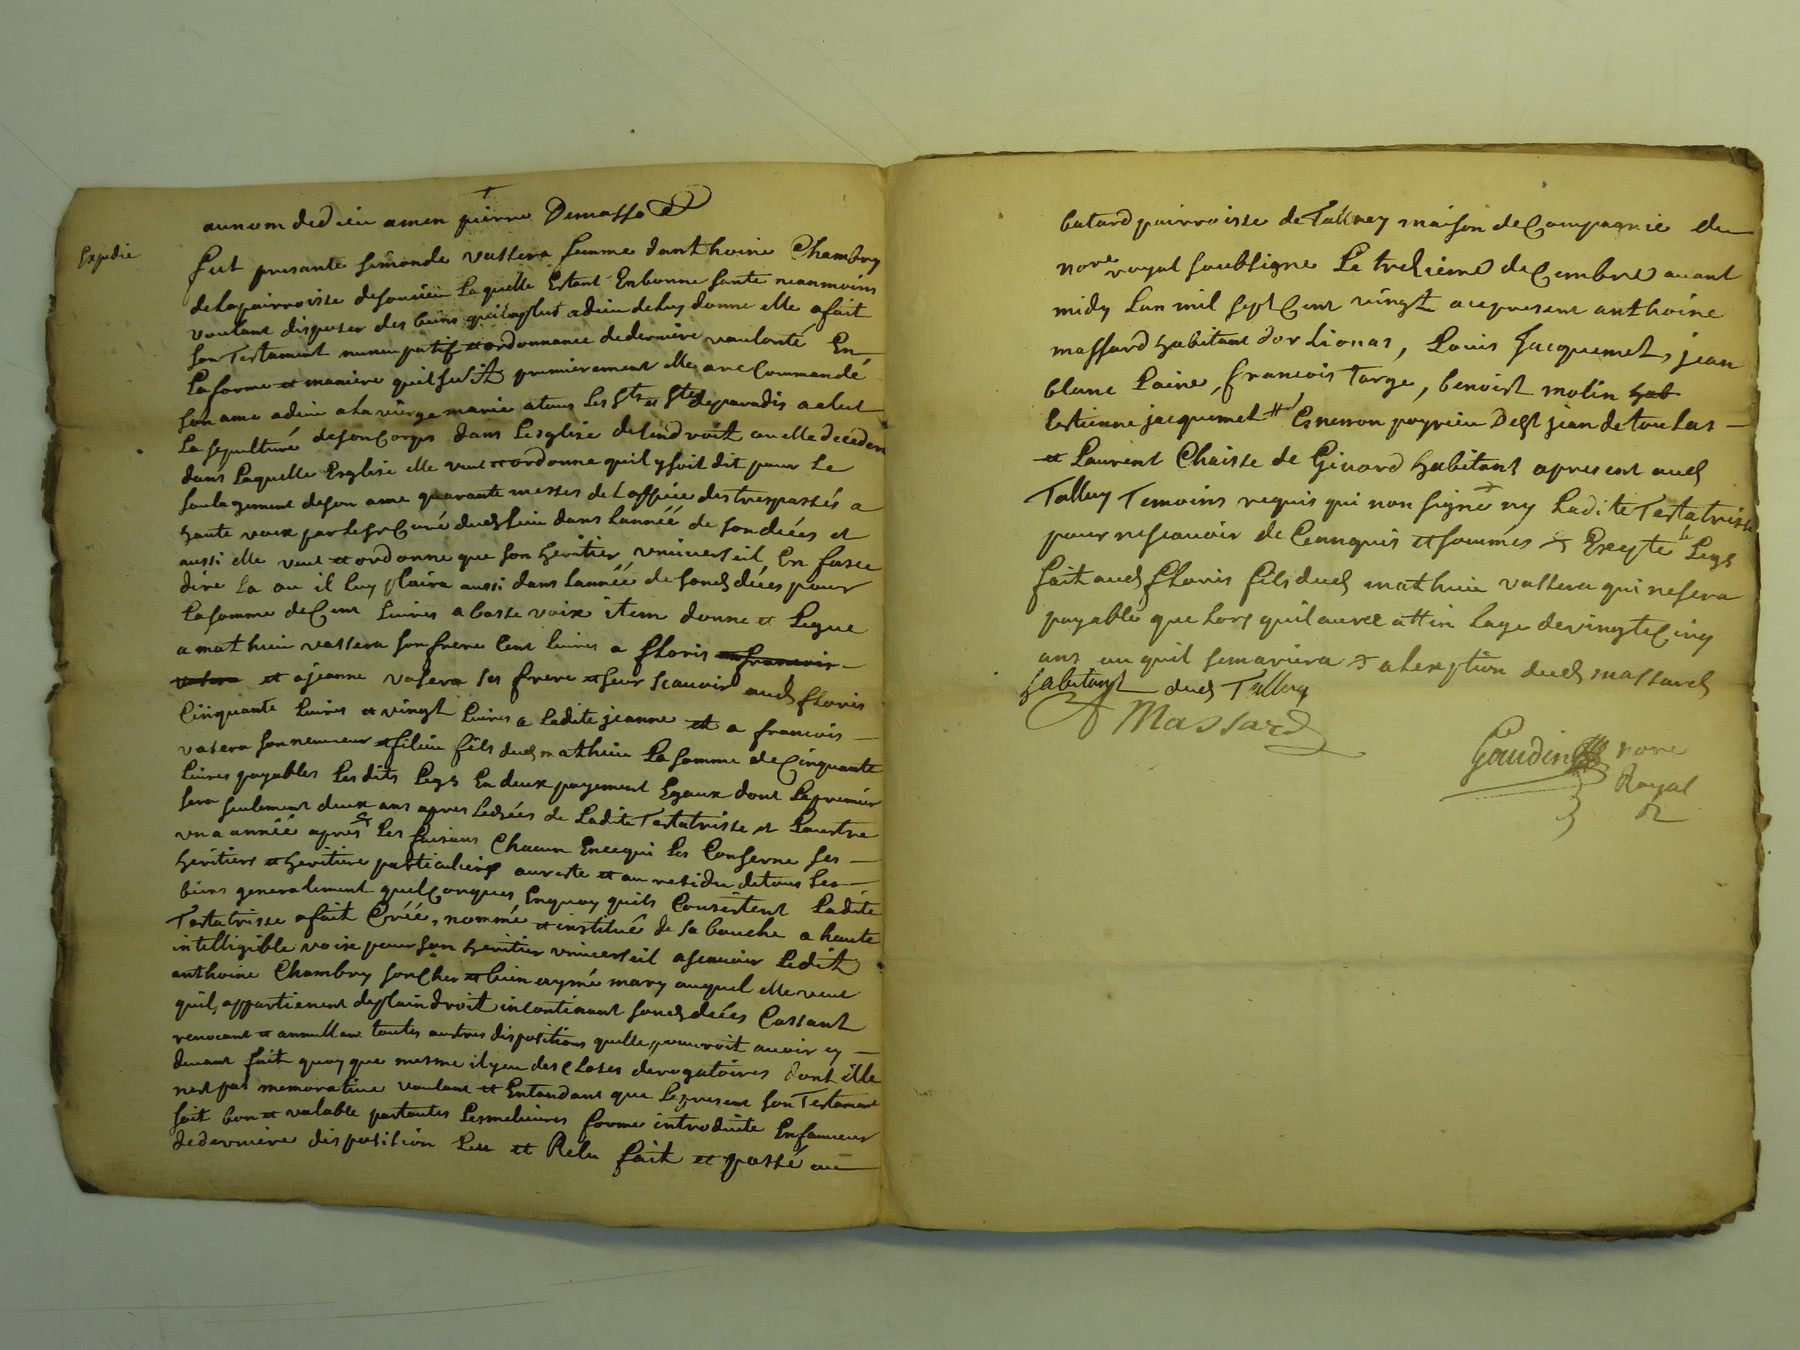 au nom de dieu amen pierre Demasso
Expedie
fut presante simonde vassera femme danthoine Chambry
de la pairroisse de soucieu Laquelle Estant En bonne sante neanmoins
voulant disposer des biens quil a plut a dieu de luy donne elle a fait
son Testament nuncupatif et ordonnance de derniere voulonté En
La forme et maniere quil suit premierement elle a recommandé
son ame a dieu a la vierge marie a tous les Sts et Stes de paradis a elut
La sepulture de son Corps dans Lesglise de lendroit ou elle decedera
dans Laquelle Esglise elle veut et ordonne quil y soit dit pour Le
soulagement de son ame quarante messes de Loffice des trespassés a
haute voix par le sr Curé dud lieu dans Lannéé de son déées et
aussi elle veut et ordonne que son heritier vniverseil En fasse
dire La ou il luy plaira aussi dans Lannéé de sond déées pour
La somme de Cent Livres a basse voix item donne et Legue
a mathieu vassera son frere Cent Livres a floris francois
vasera et a jeanne vasera ses frere et seur scauoir aud floris
Cinquante Livres et vingt Livres a Ladite jeanne et a francois
vasera son nepveur et filieu fils dud mathieu La somme de Cinquante
Livres payables Lesdits Legs En deux payement Egaux dont Le premier
sera seulement deux ans apres Ledéées de Ladite Testatrisse et Lautre
vn a année apres Les faisant Chacun En ce qui Les Conserne ses
heritiers et heritiere particuliers au reste et au residu de tous Les
biens generalement quelconques En quoy quils Consistent Ladite
Testatrisse a fait Créé, nommé et institué de sa bouche a haute
intelligible voix pour son heritier vniverseil ascavoir Ledit
anthoine Chambry son Cher et bien aymé mary auquel elle veut
quil appartienent de plain droit incontinant sond déées Cassant
revocant et annullant toutes autres dispositions quelle pourroit avoir cy
devant fait quoy que mesme il y eu des Closes derogatoires dont elle
nest pas memorative voulant et Entandant que Le present son Testament
soit bon et valable par toutes Les melieures forme introduite En faveur
de derniere disposition Leu et Relu fait et passé au
batard pairroisse de Tallvey maison de Compagnie du
nore royal soubsigne Le trezieme decembre avant
midy Lan mil sept Cent vingt a ce present anthoine
massard habitant dorlionas, Louis Jacquemet, jean
blanc Laine, francois Targe, benoist molin hab
Estienne jacquemet Esnemon poyrieu De st jean de toulas
et Laurent Chaisse de Givord habitant apresent aud
Talluy Temoins requis qui non signe ny Ladite Testatrisse
pour ne scauoir de Ce enquis et sommés Excepte le Legs
fait aud floris fils dud mathieu vassera qui ne sera
payable que Lors quil aura attin Lage de vingt Cinq
ans ou quil se mariera a Lexeption dud massard
habitant dud Talluy
A Massard
Gaudin nore
Royal